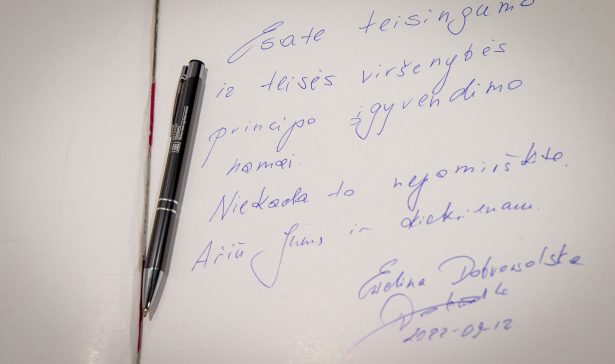 Esate teisingumo
ir teisės viršenybės
principo įgyvendimo
namai.
Niekada to nepamirškite.
Ačiū Jums ir kiekvienam.
Ewelina Dobrowolska
2022-09-12